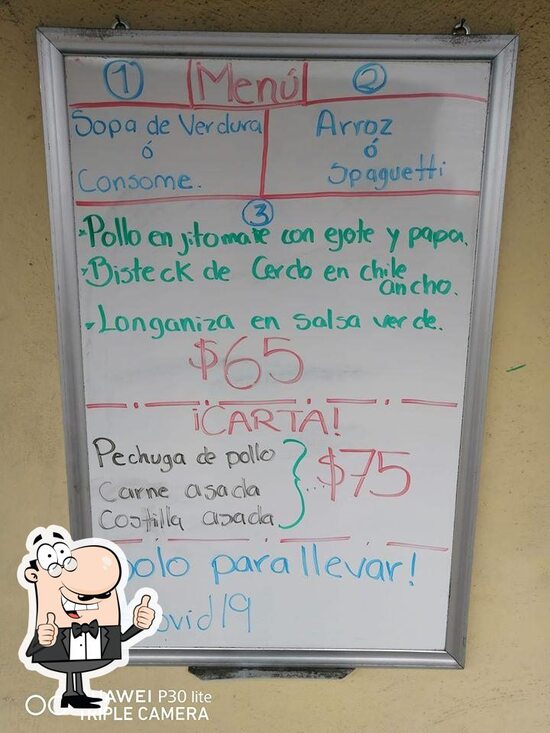 1 Menú 2
Sopa de Verdura
ó
Consome.
Arroz
ó
Spaguetti
3
Pollo en jitomate con ejote y papa.
Bisteck de Cerdo en chile
ancho.
Longaniza en salsa verde.
$65
¡CARTA!
Pechuga de pollo
Carne asada
Costilla asada
$75
para llevar!
P30 lite
TRIPLE CAMERA